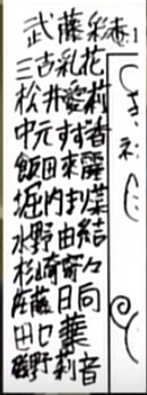 武藤彩未
三吉彩花
松井愛莉
中元すず香
飯田來麗
堀内まり菜
水野由結
杉崎寧々
佐藤日向
田口華
磯野莉音